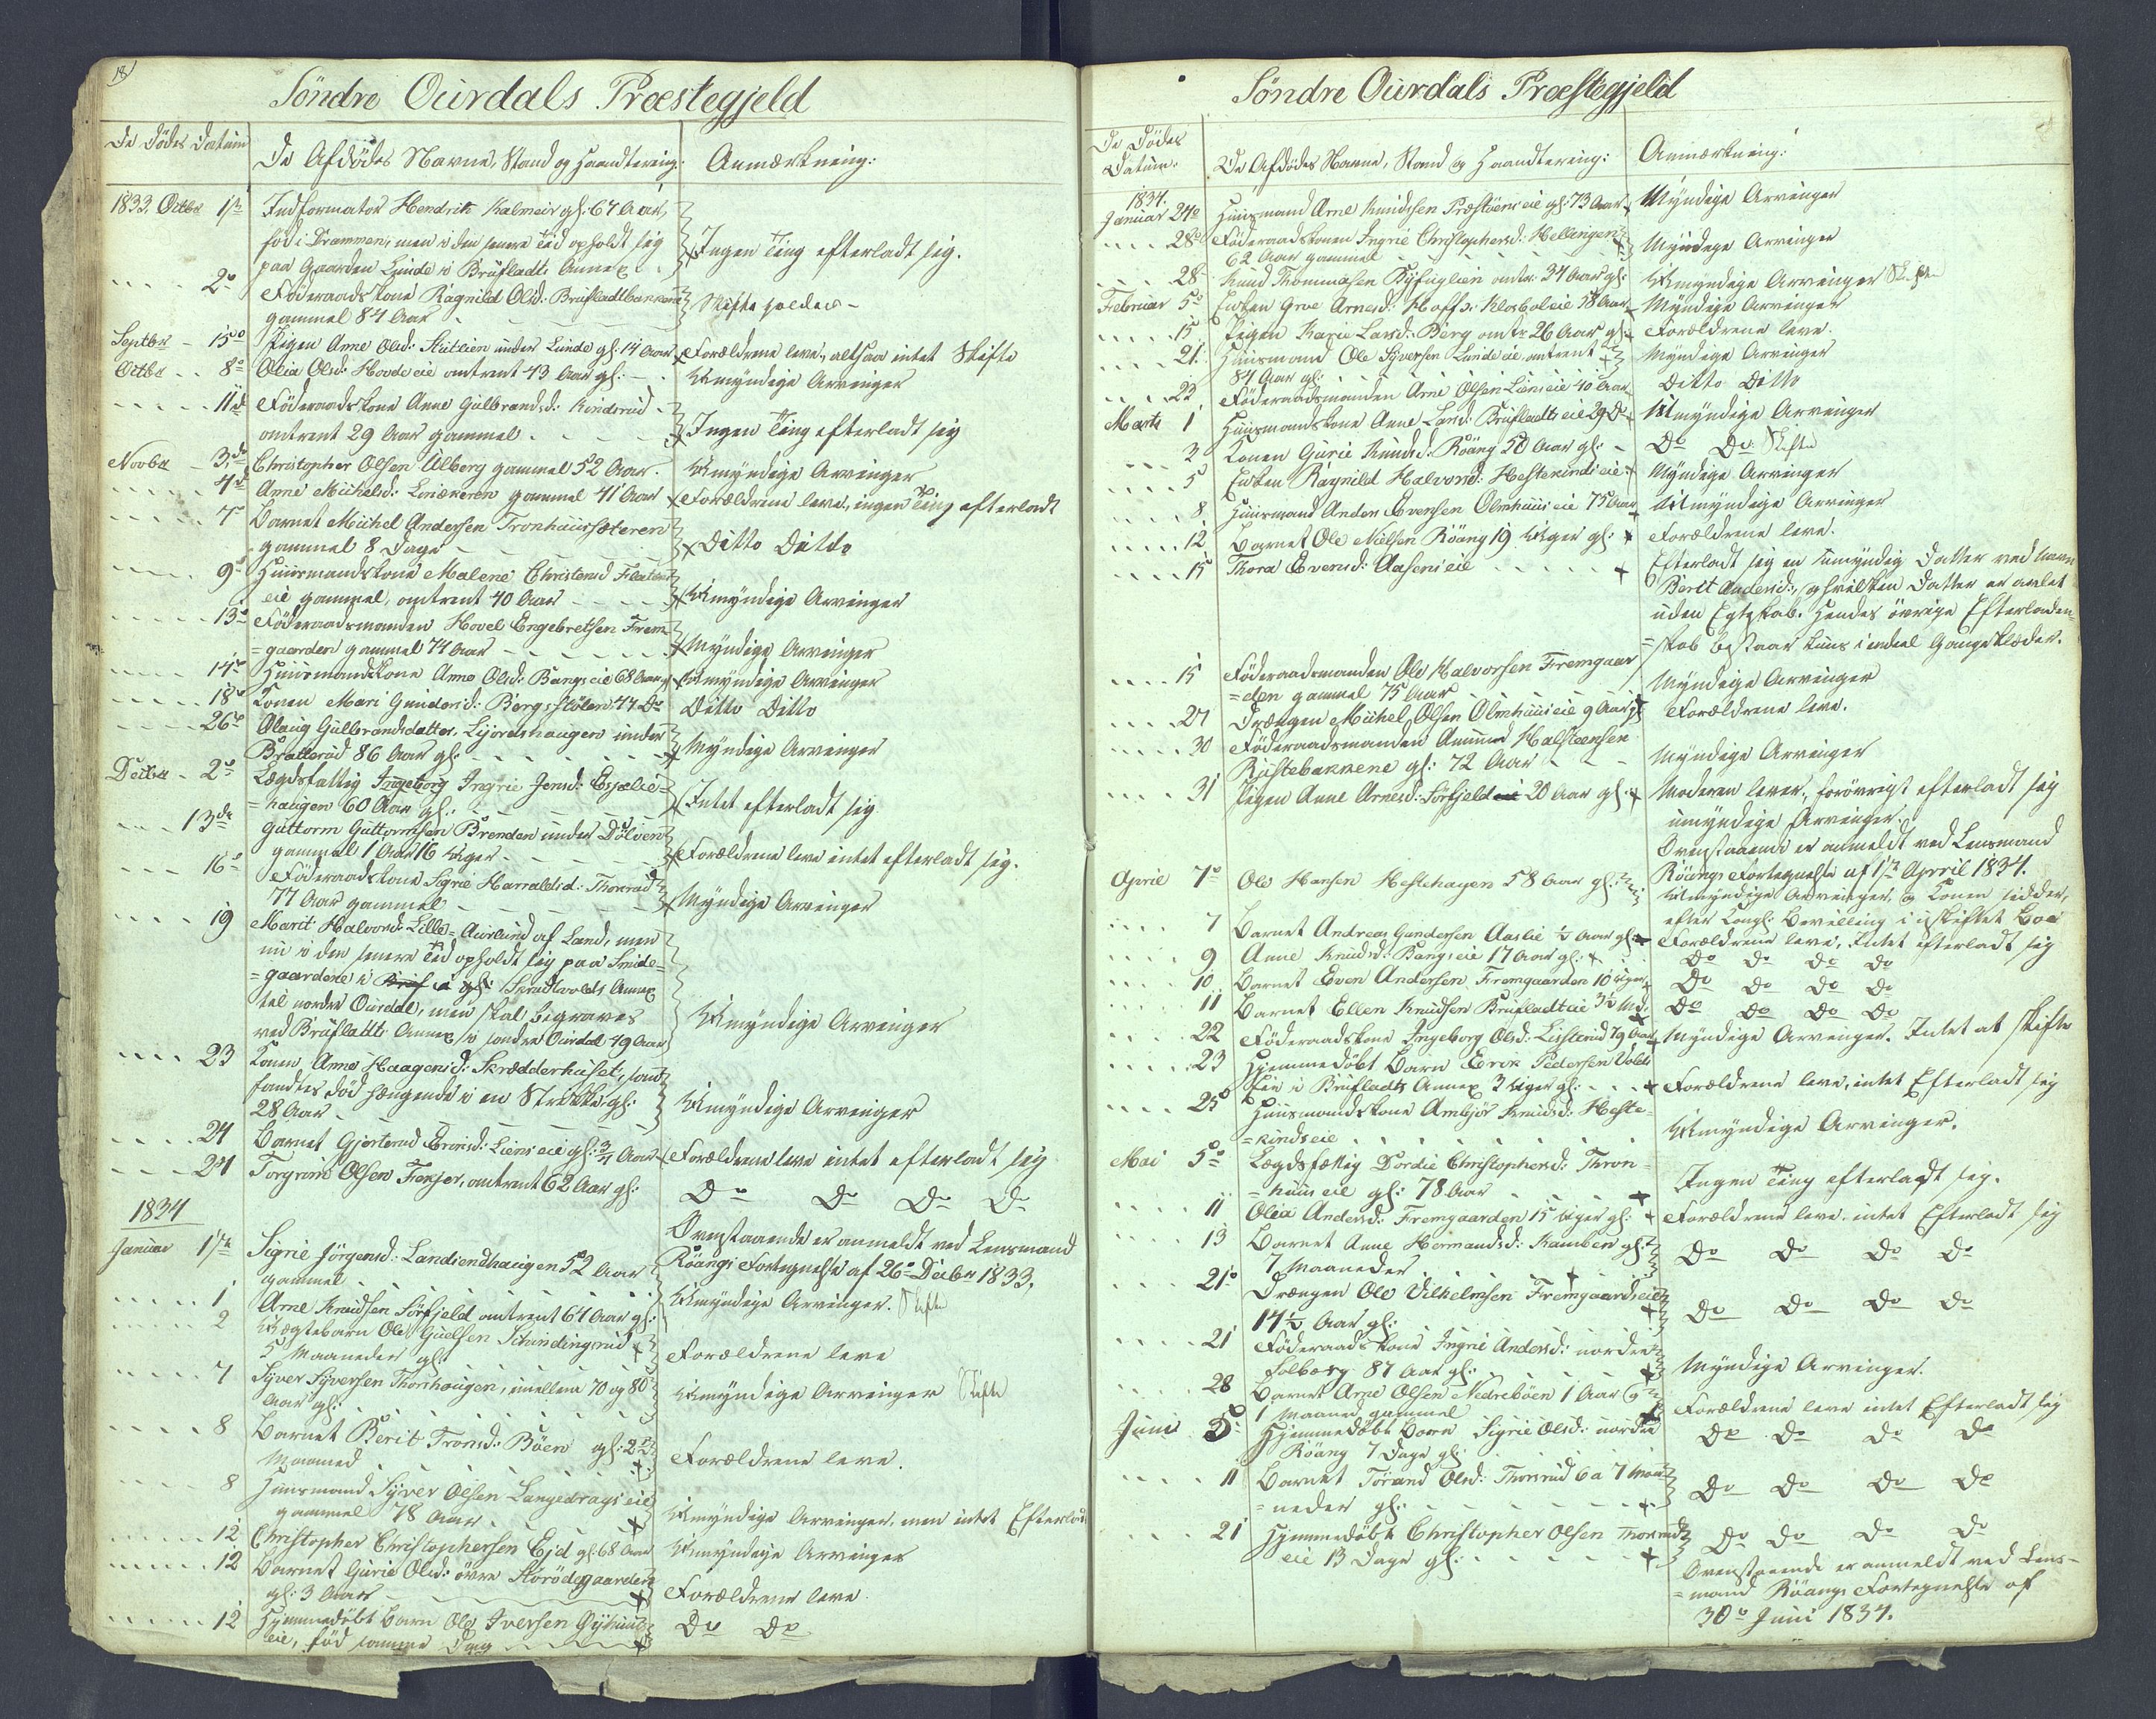 18
Söndre Ourdals Præstegjeld
De Dödes Datum
De Afdödes Navne, Stand og Haandtering:
Anmærkning:
1833. Octbr 1ste
Informator Hendrik Kalmeir gl: 67 Aar,
föd i Drammen, men i den senere Tid opholdt sig
paa Gaarden Lunde i Brufladts Annex
Ingen Ting efterladt sig.
2o
Föderaadskone Ragnild Olsd: Brufladtbakken
gammel 84 Aar
Skifte holdes
Septbr - 15de
Pigen Anne Olsd: Slutlien under Lunde gl: 14 Aar
Forældrene leve, altsaa intet Skifte
Octbr 8o
Olia Olsd: Hovdeeie omtrent 43 Aar gl:
Umyndige Arvinger
11te
Föderaadskone Anne Gulbrandsd: Kindsrud
omtrent 29 Aar gammel
Ingen Ting efterladt sig
Novbr - 3de
Christopher Olsen Ulberg gammel 52 Aar
Umyndige Arvinger
4de
Anne Mikkelsd: gammel 41 Aar
Forældrene leve, ingen Ting efterladt
7
Barnet Mikkel Andersen Tronhuussæteren
gammel 8 Dage
Ditto Ditto
9o
Huusmandskone Malene Christensd
eie gammel, omtrent 40 Aar
Umyndige Arvinger
13o
Föderaadsmanden Hovel Engebretsen Frem-
=gaarden gammel 74 Aar
Myndige Arvinger
14o
Huusmandskone Anne Olsd: Bangseie 68 Aar
Umyndige Arvinger
18o
Konen Mari Gundersd: Bergsstölen 47 Do
Ditto Ditto
26o
Olaug Gulbrandsdatter, under
Bratterud 86 Aar gl:
Myndige Arvinger
Decbr - 2o
Lægdsfattig Ingeborg Ingrie Jensd:
=haugen 60 Aar gl:
Intet efterladt sig
13de
Guttorm Guttormsen Brenden under Dölven
gammel 1 Aar 16 Uger
Forældrene leve intet efterladt sig.
16o
Föderaadskone Sigrie Harraldsd: Thonrud
77 Aar gammel
Myndige Arvinger
19
Marit Halvorsd: Lille-Aurlund af Land, men
nu i den senere Tid opholdt sig paa Smide-
=gaardene i Skrudtvolds Annex
til nordre Ourdal, men skal begraves
ved Bruflatts Annex i söndre Ourdal 49 Aar
Umyndige Arvinger
23
Konen Anne Haagensd: Skrædderhuset, som
fandtes död hængende i en Strikke gl:
28 Aar
Umyndige Arvinger
24
Barnet Gjertrud Ericsd: Lienseie gl: 3/4 Aar
Forældrene leve intet efterladt sig
24
Torgrim Olsen Fönhus, omtrent 62 Aar gl:
Do Do Do Do
1834
Ovenstaaende er anmeldt ved Lensmand
Röangs Fortegnelse af 26o Decbr 1833.
Januar 1ste
Sigrie Jörgensd: Landsendhaugen 52 Aar
gammel
1
Arne Knudsen Sörfjeld omtrent 64 Aar gl:
Umyndige Arvinger. Skifte
2
Uægtebarn Ole Guulsen
5 Maaneder gl:
Forældrene leve
7
Syver Syversen Thonhaugen, imellem 70 og 80
Aar gl:
Umyndige Arvinger Skifte
8
Barnet Berit Tronsd: Böen gl: 2
Maaned
Forældrene leve.
8
Huusmand Syver Olsen Langedrags eie
gammel 78 Aar
Umyndige Arvinger, men intet Efterladt
12
Christopher Christophersen Ejd gl: 68 Aar
Umyndige Arvinger
12
Barnet Gurie Olsd: övre Storödegaarden
gl: 3 Aar
Forældrene leve.
12
Hjemmedöbt Barn Ole Iversen
eie, föd samme Dag
Do Do
Söndre Ourdals Præstegjeld
De Dödes
Datum:
De Afdödes Navne, Stand og Haandtering:
Anmærkning:
1834.
Januar 24o
Huusmand Arne Knudsen Præstöens eie gl: 73 Aar
Myndige Arvinger
28o
Föderaadskonen Ingrie Christophersd: Hellingen
62 Aar gammel
Myndige Arvinger
28
Knud Thommasen omtr: 34 Aar gl:
Umyndige Arvinger Skifte
Februar 5o
Enken Groe Arnesd: 78 Aar
Myndige Arvinger
15
Pigen Karie Larsd: Berg omtr 26 Aar gl:
Forældrene leve.
21
Huusmand Ole Syversen Lundeeie omtrent
84 Aar gl:
Myndige Arvinger
22
Föderaadsmanden Arne Olsen Lienseie 70 Aar
Ditto Ditto
Marts 1
Huusmandskone Anne Larsd: Brufladts eie 29 Do
Umyndige Arvinger
3
Konen Gurie Knudsd: Röang 50 Aar gl:
Do Do: Skifte
5
Enken Ragnild Halvorsd: Hestekindseie
Myndige Arvinger
8
Huusmand Anders Evensen Olmhuus eie 75 Aar
Umyndige Arvinger
12
Barnet Ole Nielsen Röang 19 Uger gl:
Forældrene leve.
15
Thora Evensd: Aasens eie
Efterladt sig en umyndig Datter ved Navn
Berit Andersd:, hvilken Datter er avlet
uden Egteskab. Hendes övrige Efterladen-
=skab bestaar kuns i endeel Gangklæder.
15
Föderaadsmanden Ole Halvorsen Fremgaar
=den gammel 75 Aar
Myndige Arvinger
27
Drængen Mikkel Olsen Olmhuus eie 9 Aar gl
Forældrene leve.
30
Föderaadsmanden Amund Halsteensen
Rustebakkene gl: 72 Aar
Myndige Arvinger
31
Pigen Anne Arnesd: Sörfjeld eie 20 Aar gl:
Moderen lever, forövrigt efterladt sig
umyndige Arvinger.
Ovenstaaende er anmeldt ved Lensmand
Röangs Fortegnelse af 1ste April 1834.
Aprile 7o
Ole Hansen Hestehagen 58 Aar gl:
Umyndige Arvinger, og Konen sidder,
efter Kongl: Bevilling i uskiftet Boe
7
Barnet Andreas Gundersen Aaslie 1/2 Aar gl:
Forældrene leve, Intet efterladt sig
9
Anne Knudsd: Bangseie 17 Aar gl:
Do Do Do Do
10
Barnet Even Andersen Fremgaarden 10 Uger
Do Do Do Do
11
Barnet Ellen Knudsen Bruflandt eie 3 1/2 Md.
Do Do Do Do
22
Föderaadskone Ingeborg Olsd: Lislerud 79 Aar
Myndige Arvinger. Intet at skifte
23
Hjemmedöbt Barn Erik Pedersen Volds
Eie i Bruflads Annex 3 Uger gl:
Forældrene leve, intet Efterladt sig
25
Huusmandskone Ambjör Knudsd: Heste-
=kindseie
Umyndige Arvinger.
Mai 5o
Lægdsfattig Dordie Christophersd: Thron-
=huus eie gl: 78 Aar
Ingen Ting efterladt sig.
11
Olea Andersd: Fremgaarden 15 Uger gl:
Forældrene leve. intet Efterladt sig
13
Barnet Anne Hermandsd: Kamben gl:
7 Maaneder
Do Do Do Do
21o
Drængen Ole Vilhelmsen Fremgaardseie
17 1/2 Aar gl:
Do Do Do Do
21
Föderaadskone Ingrie Andersd: nordre
Solberg 87 Aar gl:
Myndige Arvinger.
28
Barnet Arne Olsen Nedreböen 1 Aar og
1 Maaned gammel
Forældrene leve intet Efterladt sig
Juni 5
Hjemmedöbt Barn Sigrie Olsd: nordre
Röang 7 Dage gl:
Do Do Do Do
11
Barnet Torand Olsd: Thonrud 6 a 7 Maa
=neder gl:
Do Do Do Do
21
Hjemmedöbt Christopher Olsen Thonrud
eie 13 Dage gl:
Do Do Do Do
Ovenstaaende er anmeldt ved Lens-
=mand Röangs Fortegnelse af
30o Juni 1834.